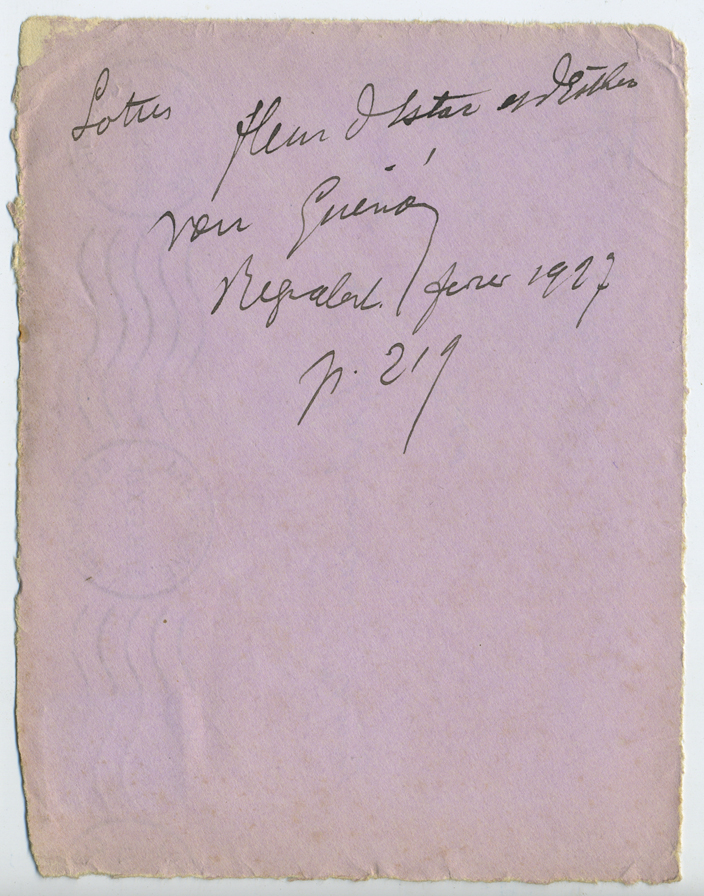 Lotus fleur d'Istar et d'Esther
voir Guénon
Regnabit. fevrier 1927
p. 219